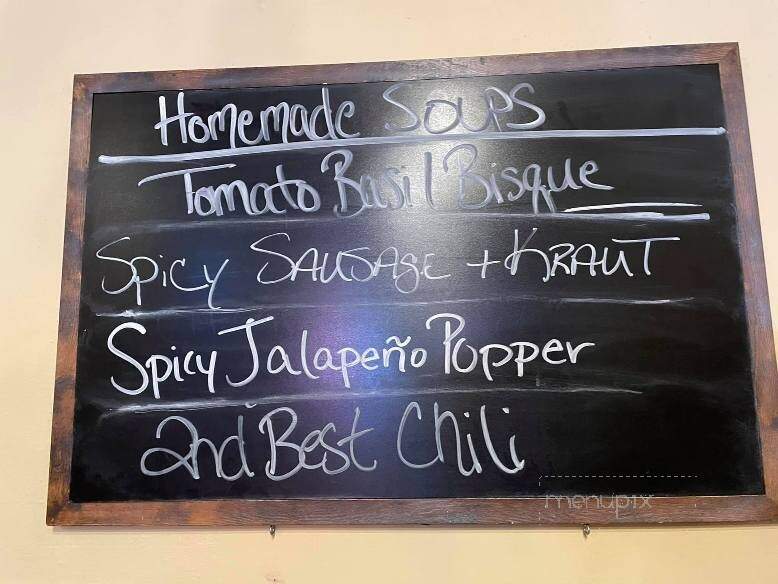 Homemade Soups
Tomato Basil Bisque
Spicy Sausage + Kraut
Spicy Jalapeño Popper
2nd Best Chili
menupix